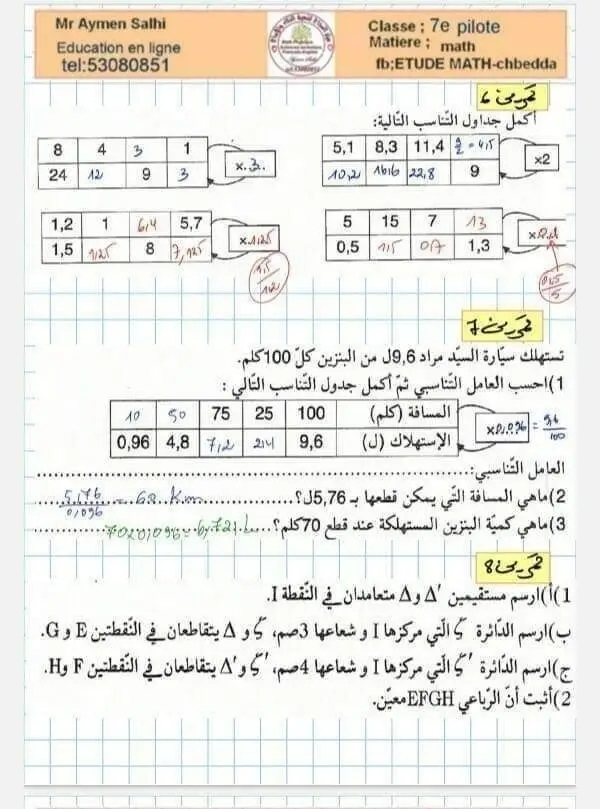 Mr Aymen Salhi
Education en ligne
tel:53080851
Classe ; 7e pilote
Matiere ; math
fb;ETUDE MATH-chbedda
تمرين 6
أكمل جداول التناسب التالية:
8 4 3 1
24 12 9 3
x.3.
5,1 8,3 11,4 9/2 = 4,5
10,2 16,6 22,8 9
x2
1,2 1 6,4 5,7
1,5 1,25 8 7,125
x.1,25
1,5/1,2
5 15 7 13
0,5 1,5 0,7 1,3
x0,1
0,5/5
تمرين 7
تستهلك سيّارة السيّد مراد 9,6ل من البنزين كلّ 100كلم.
1)احسب العامل التّناسبي ثمّ أكمل جدول التّناسب التّالي :
10 50 75 25 100 المسافة (كلم)
0,96 4,8 7,2 2,4 9,6 الإستهلاك (ل)
x0,096 = 9,6/100
العامل التّناسبي:
2)ماهي المسافة التّي يمكن قطعها بـ 5,76ل؟ 5,176/0,096 = 60 Km
3)ماهي كميّة البنزين المستهلكة عند قطع 70كلم؟ 70x0,096=6,72L
تمرين 8
1)أ)ارسم مستقيمين Δ' و Δ متعامدان في النّقطة I.
ب)ارسم الدّائرة ζ الّتي مركزها I و شعاعها 3صم، ζ و Δ يتقاطعان في النّقطتين E و G.
ج)ارسم الدّائرة ζ' الّتي مركزها I و شعاعها 4صم، ζ' و Δ' يتقاطعان في النّقطتين F وH.
2)أثبت أنّ الرّباعي EFGH معيّن.